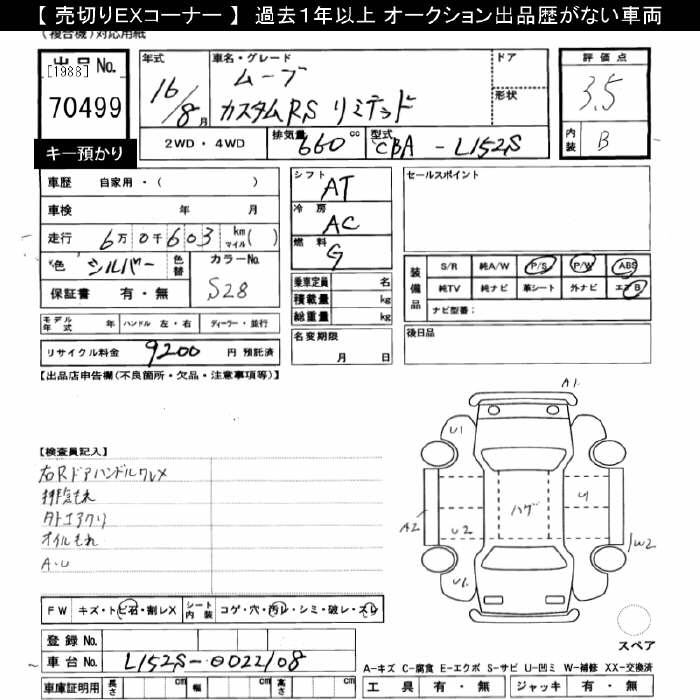 【 売切りEXコーナー 】 過去１年以上 オークション出品歴がない車両
(複合機)対応用紙
出品No.
[1988]
70499
キー預かり
年式
16/8月
車名・グレード
ムーブ
カスタムRS リミテッド
ドア
形状
2WD・4WD
排気量
660 cc
型式
CBA - L152S
評価点
3.5
内装
B
車歴 自家用・( )
車検 年 月
走行 6万0千603 km マイル( )
色 シルバー 色替
カラーNo.
S28
保証書 有・無
モデル年式 年 ハンドル 左・右 ディーラー・並行
リサイクル料金 9200 円 預託済
シフト
AT
冷房
AC
燃料
G
乗車定員 名
積載量 kg
総重量 kg
名変期限
月 日
セールスポイント
装備品
S/R 純A/W P/S P/W ABS
純TV 純ナビ 革シート 外ナビ エアB
ナビ型番：
後日品
【出品店申告欄(不良箇所・欠品・注意事項等)】
【検査員記入】
右RドアハンドルワレX
排気もれ
タトエアクリ
オイルもれ
A・U
A1
U1
ハゲ
U
A2
U2
W2
U1
スペア
FW キズ・トビ石・割レX
シート内装 コゲ・穴・汚レ・シミ・破レ・スレ
登録No.
車台No. L152S-0022108
車庫証明用 長さ cm 幅 cm 高さ cm
A-キズ C-腐食 E-エクボ S-サビ U-凹ミ W-補修 XX-交換済
工具 有・無 ジャッキ 有・無